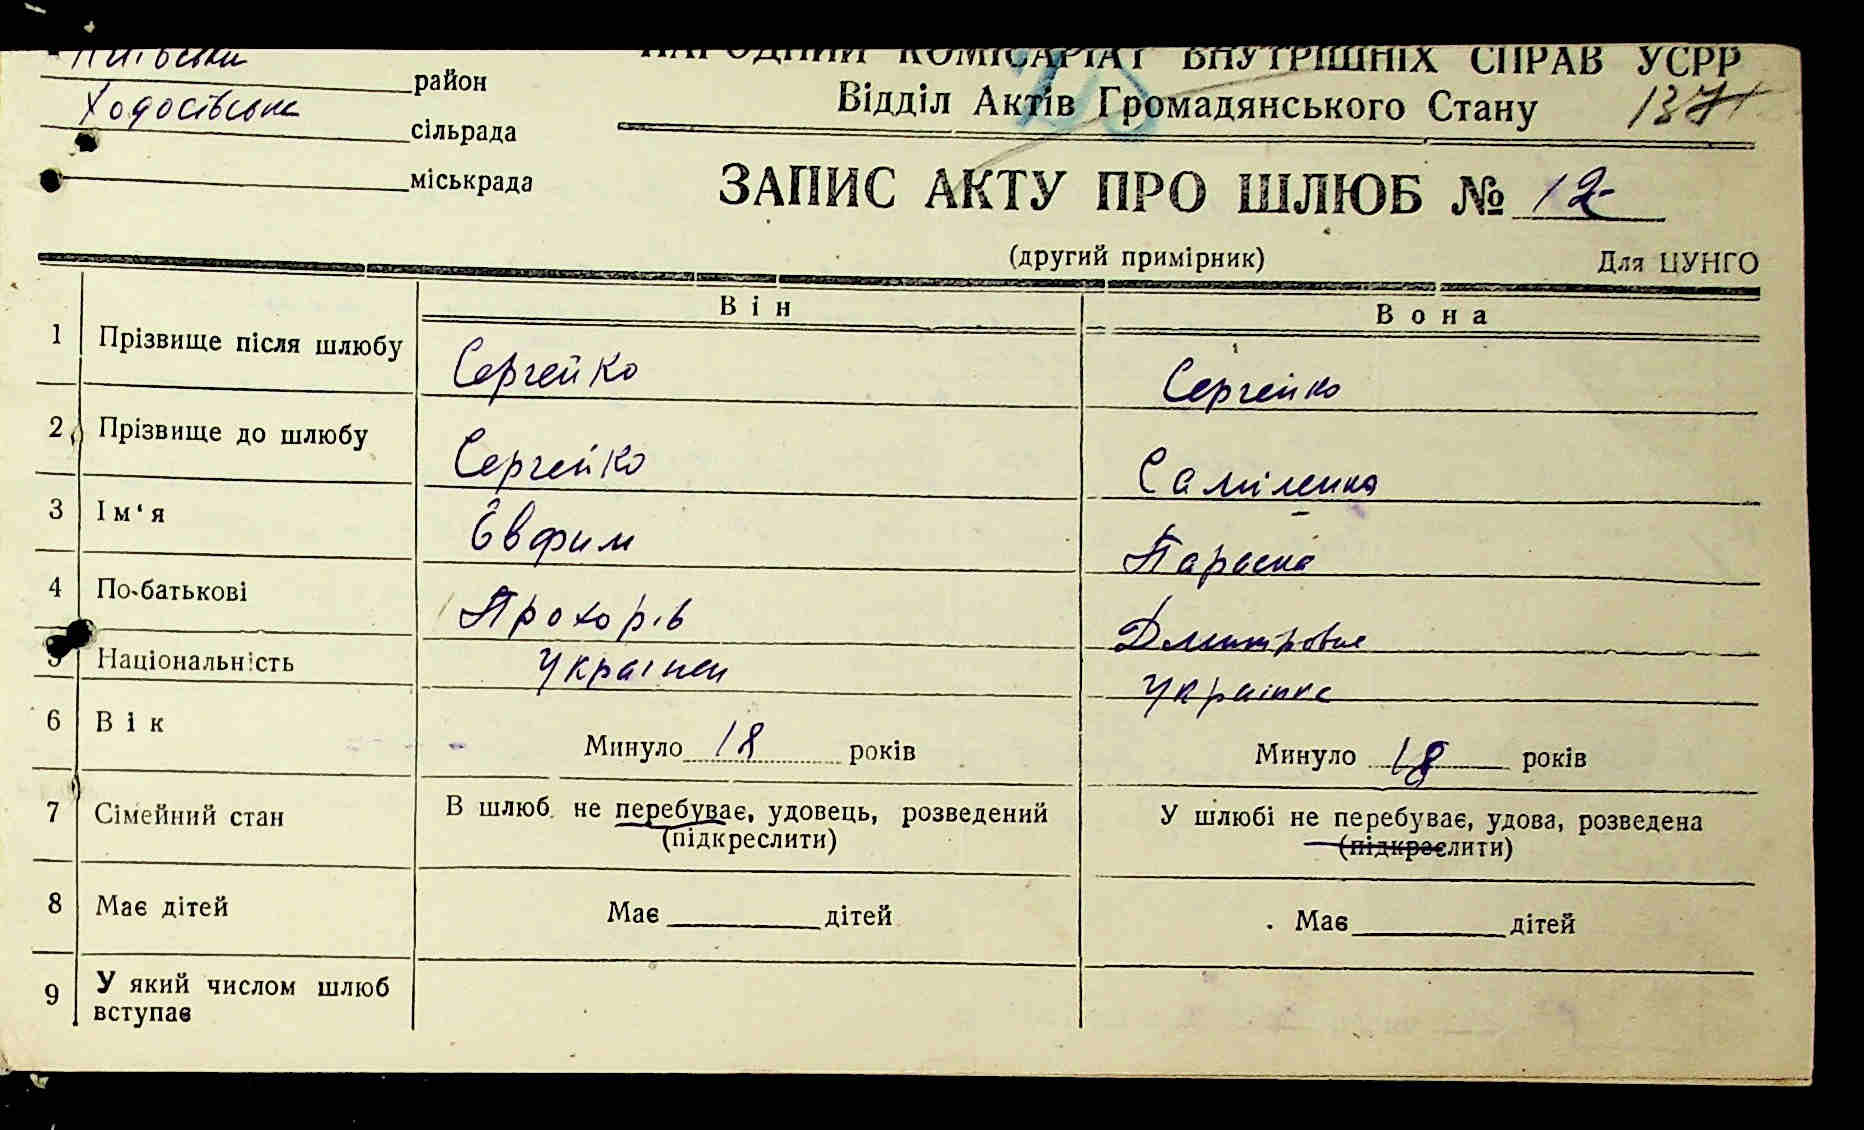 Київський район
Ходосівська сільрада
міськрада
НАРОДНИЙ КОМІСАРІАТ ВНУТРІШНІХ СПРАВ УСРР
Відділ Актів Громадянського Стану
ЗАПИС АКТУ ПРО ШЛЮБ № 12
(другий примірник) Для ЦУНГО
Він Вона
1 Прізвище після шлюбу Сергейко Сергейко
2 Прізвище до шлюбу Сергейко Саміленко
3 Ім'я Євфим Параска
4 По-батькові Прохорів Дмитровна
5 Національність Українец Українка
6 Вік Минуло 18 років Минуло 18 років
7 Сімейний стан В шлюб. не перебуває, удовець, розведений У шлюбі не перебуває, удова, розведена
(підкреслити) (підкреслити)
8 Має дітей Має дітей Має дітей
9 У який числом шлюб
вступає